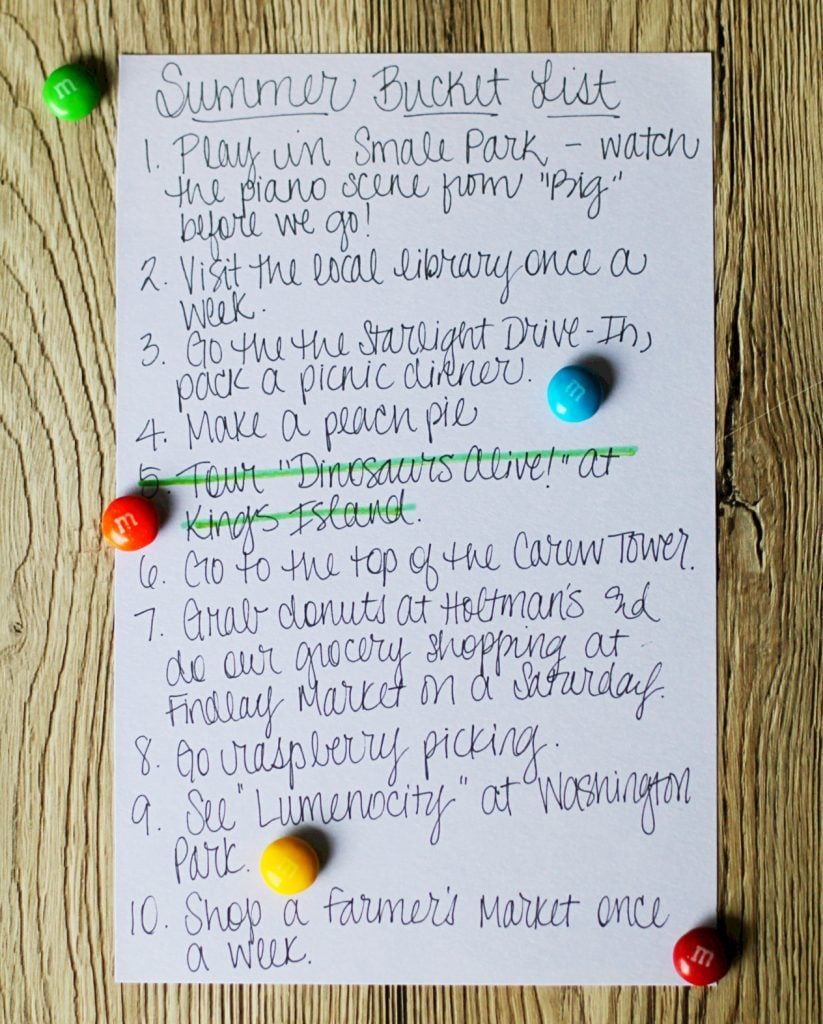 Summer Bucket List
1. Play in Smale Park - watch
the piano scene from "Big"
before we go!
2. Visit the local library once a
week.
3. Go the the Starlight Drive-In,
pack a picnic dinner.
4. Make a peach pie
5. Tour "Dinosaurs Alive!" at
Kings Island.
6. Go to the top of the Carew Tower.
7. Grab donuts at Holtman's and
do our grocery shopping at
Findlay Market on a Saturday.
8. Go raspberry picking.
9. See "Lumenocity" at Washington
Park.
10. Shop a farmer's market once
a week.
m
m
m
m
m